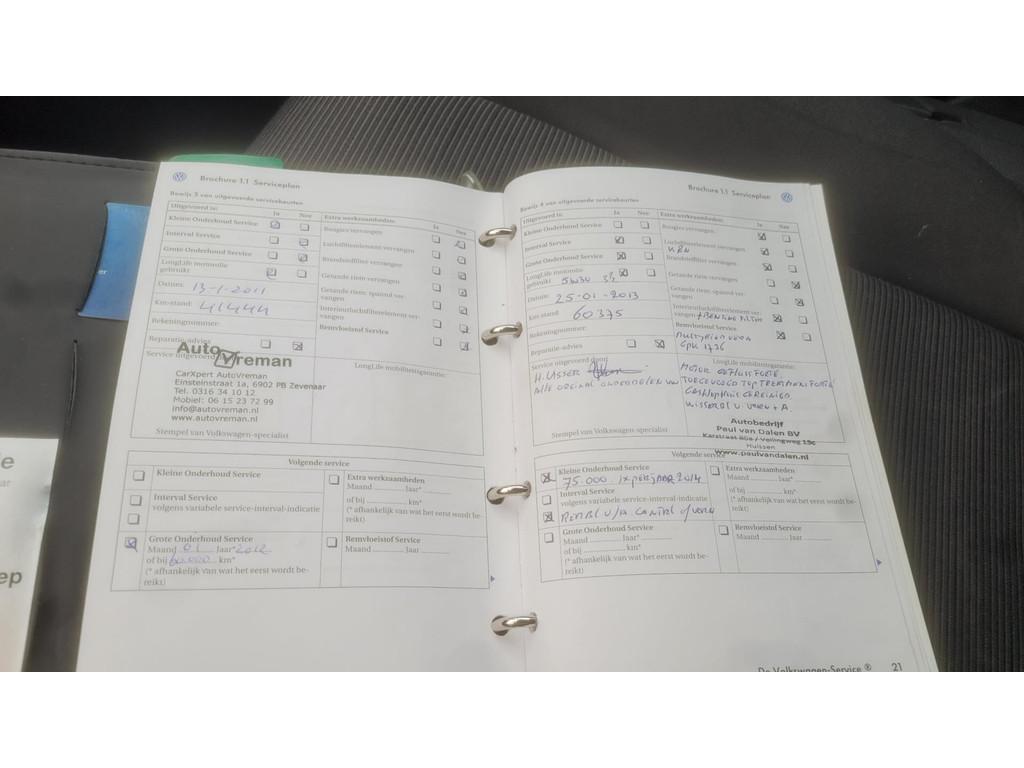 Brochure 1.1 Serviceplan
Bewijs 3 van uitgevoerde servicebeurten
Uitgevoerd is: Ja Nee
Kleine Onderhoud Service
Interval Service
Grote Onderhoud Service
LongLife motorolie gebruikt
Datum: 13-1-2011
Km-stand: 41444
Rekeningnummer:
Reparatie-advies
Extra werkzaamheden: Ja Nee
Bougies vervangen
Luchtfilterelement vervangen
Brandstoffilter vervangen
Getande riem vervangen
Getande riem: spanrol vervangen
Interieurluchtfilterelement vervangen
Remvloeistof Service
Service uitgevoerd
Auto Vreman
CarXpert AutoVreman
Einsteinstraat 1a, 6902 PB Zevenaar
Tel. 0316 34 10 12
Mobiel: 06 15 23 72 99
info@autovreman.nl
www.autovreman.nl
Stempel van Volkswagen-specialist
LongLife mobiliteitsgarantie:
Volgende service
Kleine Onderhoud Service
Interval Service
volgens variabele service-interval-indicatie
Grote Onderhoud Service
Maand 01 Jaar* 2012
of bij 60.000 km*
(* afhankelijk van wat het eerst wordt bereikt)
Extra werkzaamheden
Maand Jaar*
of bij km*
(* afhankelijk van wat het eerst wordt bereikt)
Remvloeistof Service
Maand Jaar*
Brochure 1.1 Serviceplan
Bewijs 4 van uitgevoerde servicebeurten
Uitgevoerd is: Ja Nee
Kleine Onderhoud Service
Interval Service
Grote Onderhoud Service
LongLife motorolie gebruikt 5W30
Datum: 25-01-2013
Km stand: 60375
Rekeningnummer:
Reparatie-advies
Extra werkzaamheden: Ja Nee
Bougies vervangen
Luchtfilterelement vervangen
Brandstoffilter vervangen
Getande riem vervangen
Getande riem: spanrol vervangen
Interieurluchtfilterelement vervangen
Remvloeistof Service
Service uitgevoerd door:
Stempel van Volkswagen-specialist
LongLife mobiliteitsgarantie:
MOTOR
Autobedrijf
Paul van Dalen BV
Huissen
www.paulvandalen.nl
Volgende service
Kleine Onderhoud Service
75.000 1x per jaar 2014
Interval Service
volgens variabele service-interval-indicatie
Grote Onderhoud Service
Maand Jaar*
of bij km*
(* afhankelijk van wat het eerst wordt bereikt)
Extra werkzaamheden
Maand Jaar*
of bij km*
(* afhankelijk van wat het eerst wordt bereikt)
Remvloeistof Service
Maand Jaar*
De Volkswagen-Service ® 21